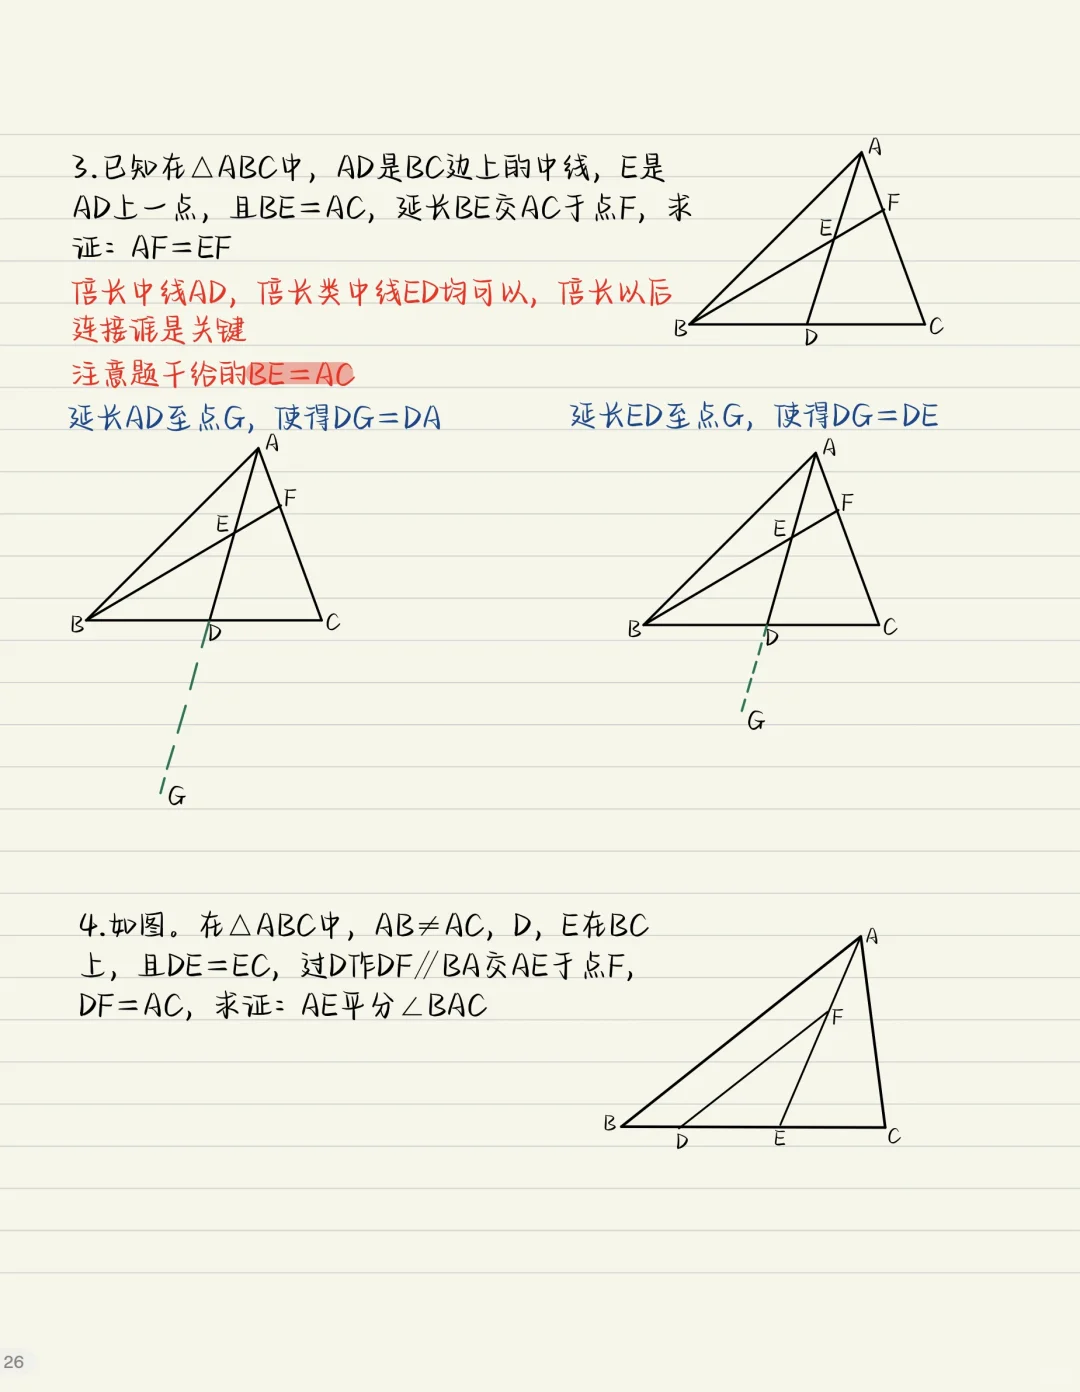 3.已知在△ABC中，AD是BC边上的中线，E是
AD上一点，且BE=AC，延长BE交AC于点F，求
证：AF=EF
倍长中线AD，倍长类中线ED均可以，倍长以后
连接谁是关键
注意题干给的BE=AC
A
F
E
B
D
C
延长AD至点G，使得DG=DA
A
F
E
B
D
C
G
延长ED至点G，使得DG=DE
A
F
E
B
D
C
G
4.如图。在△ABC中，AB≠AC，D，E在BC
上，且DE=EC，过D作DF∥BA交AE于点F，
DF=AC，求证：AE平分∠BAC
A
F
B
D
E
C
26